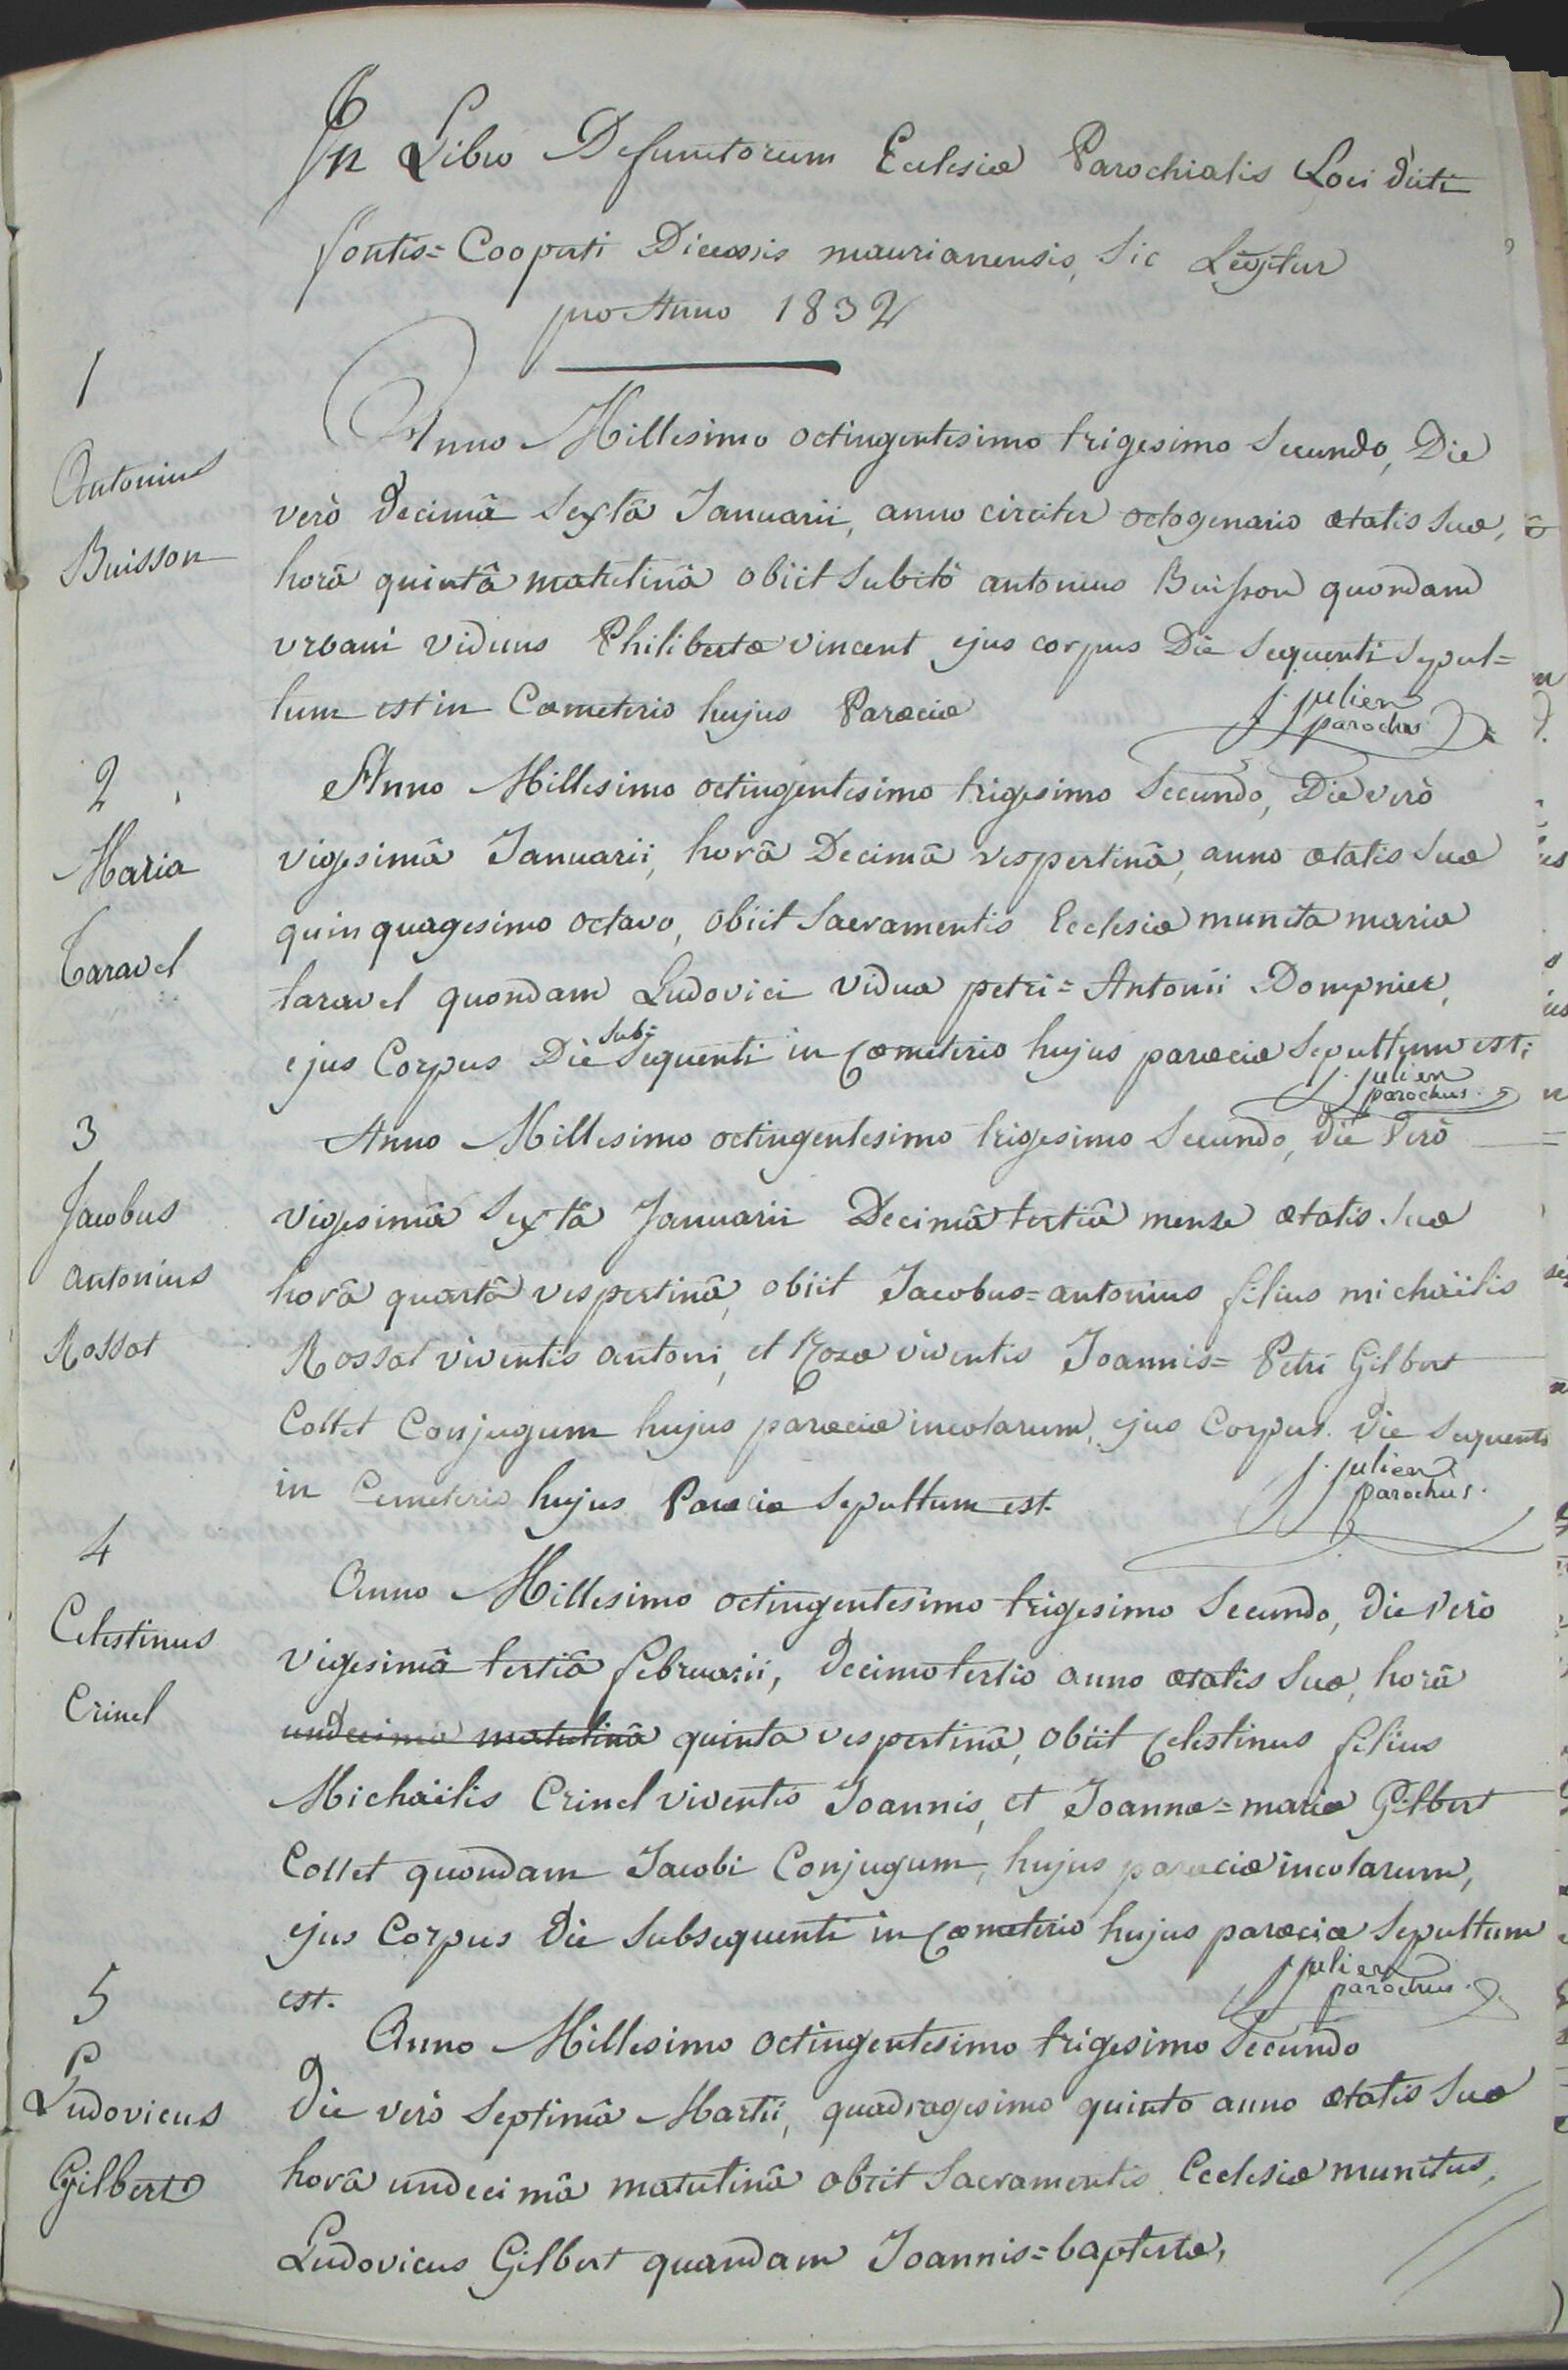 In Libro Defunctorum Ecclesiæ Parochialis Loci dicti
fontis=Cooperti Diœcesis maurianensis, sic Legitur
pro Anno 1832
1
Antonius
Buisson
Anno Millesimo octingentesimo trigesimo secundo, Die
verò decimâ sextâ Januarii, anno circiter octogenario ætatis suæ,
horâ quintâ matutinâ obiit subitò antonius Buisson quondam
urbani viduus Philibertæ vincent ejus corpus Die sequenti sepul=
tum est in Cœmeterio hujus Parœciæ
j. julien
parochus
2
Maria
Taravel
Anno Millesimo octingentesimo trigesimo secundo, Die verò
vigesimâ Januarii, horâ Decimâ vespertinâ, anno ætatis suæ
quinquagesimo octavo, obiit sacramentis Ecclesiæ munita maria
taravel quondam Ludovici vidua petri=Antonii Dompnier,
ejus Corpus Die sub=sequenti in Cœmeterio hujus parœciæ sepultum est.
j. julien
parochus.
3
Jacobus
antonius
Rossat
Anno Millesimo octingentesimo trigesimo secundo, die verò
vigesimâ sextâ Januarii Decimâ tertiâ mense ætatis suæ
horâ quartâ vespertinâ, obiit Jacobus=antonius filius michaëlis
Rossat viventis antoni, et Rosæ viventis Joannis=Petri Gilbert
Collet Conjugum hujus parœciæ incolarum, ejus Corpus die sequenti
in Cemeterio hujus Parœciæ sepultum est.
j. julien
parochus.
4
Celestinus
Crinel
Anno Millesimo octingentesimo trigesimo secundo, die verò
vigesimâ tertiâ februarii, decimo tertio anno ætatis suæ, horâ
undecima matutinâ quinta vespertinâ, obiit Celestinus filius
Michaëlis Crinel viventis Joannis, et Joannæ=mariæ Gilbert
Collet quondam Jacobi Conjugum, hujus parœciæ incolarum,
ejus Corpus die subsequenti in Cœmeterio hujus parœciæ sepultum
est.
j julien
parochus.
5
Ludovicus
Gilbert
Anno Millesimo octingentesimo trigesimo secundo
die verò septimâ Martii, quadragesimo quinto anno ætatis suæ
horâ undecimâ matutinâ obiit sacramentis Ecclesiæ munitus,
Ludovicus Gilbert quandam Joannis=baptistæ,